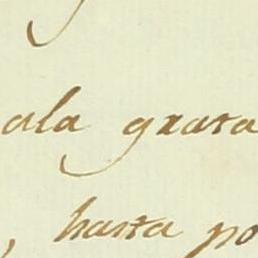 ala grata
, hasta po